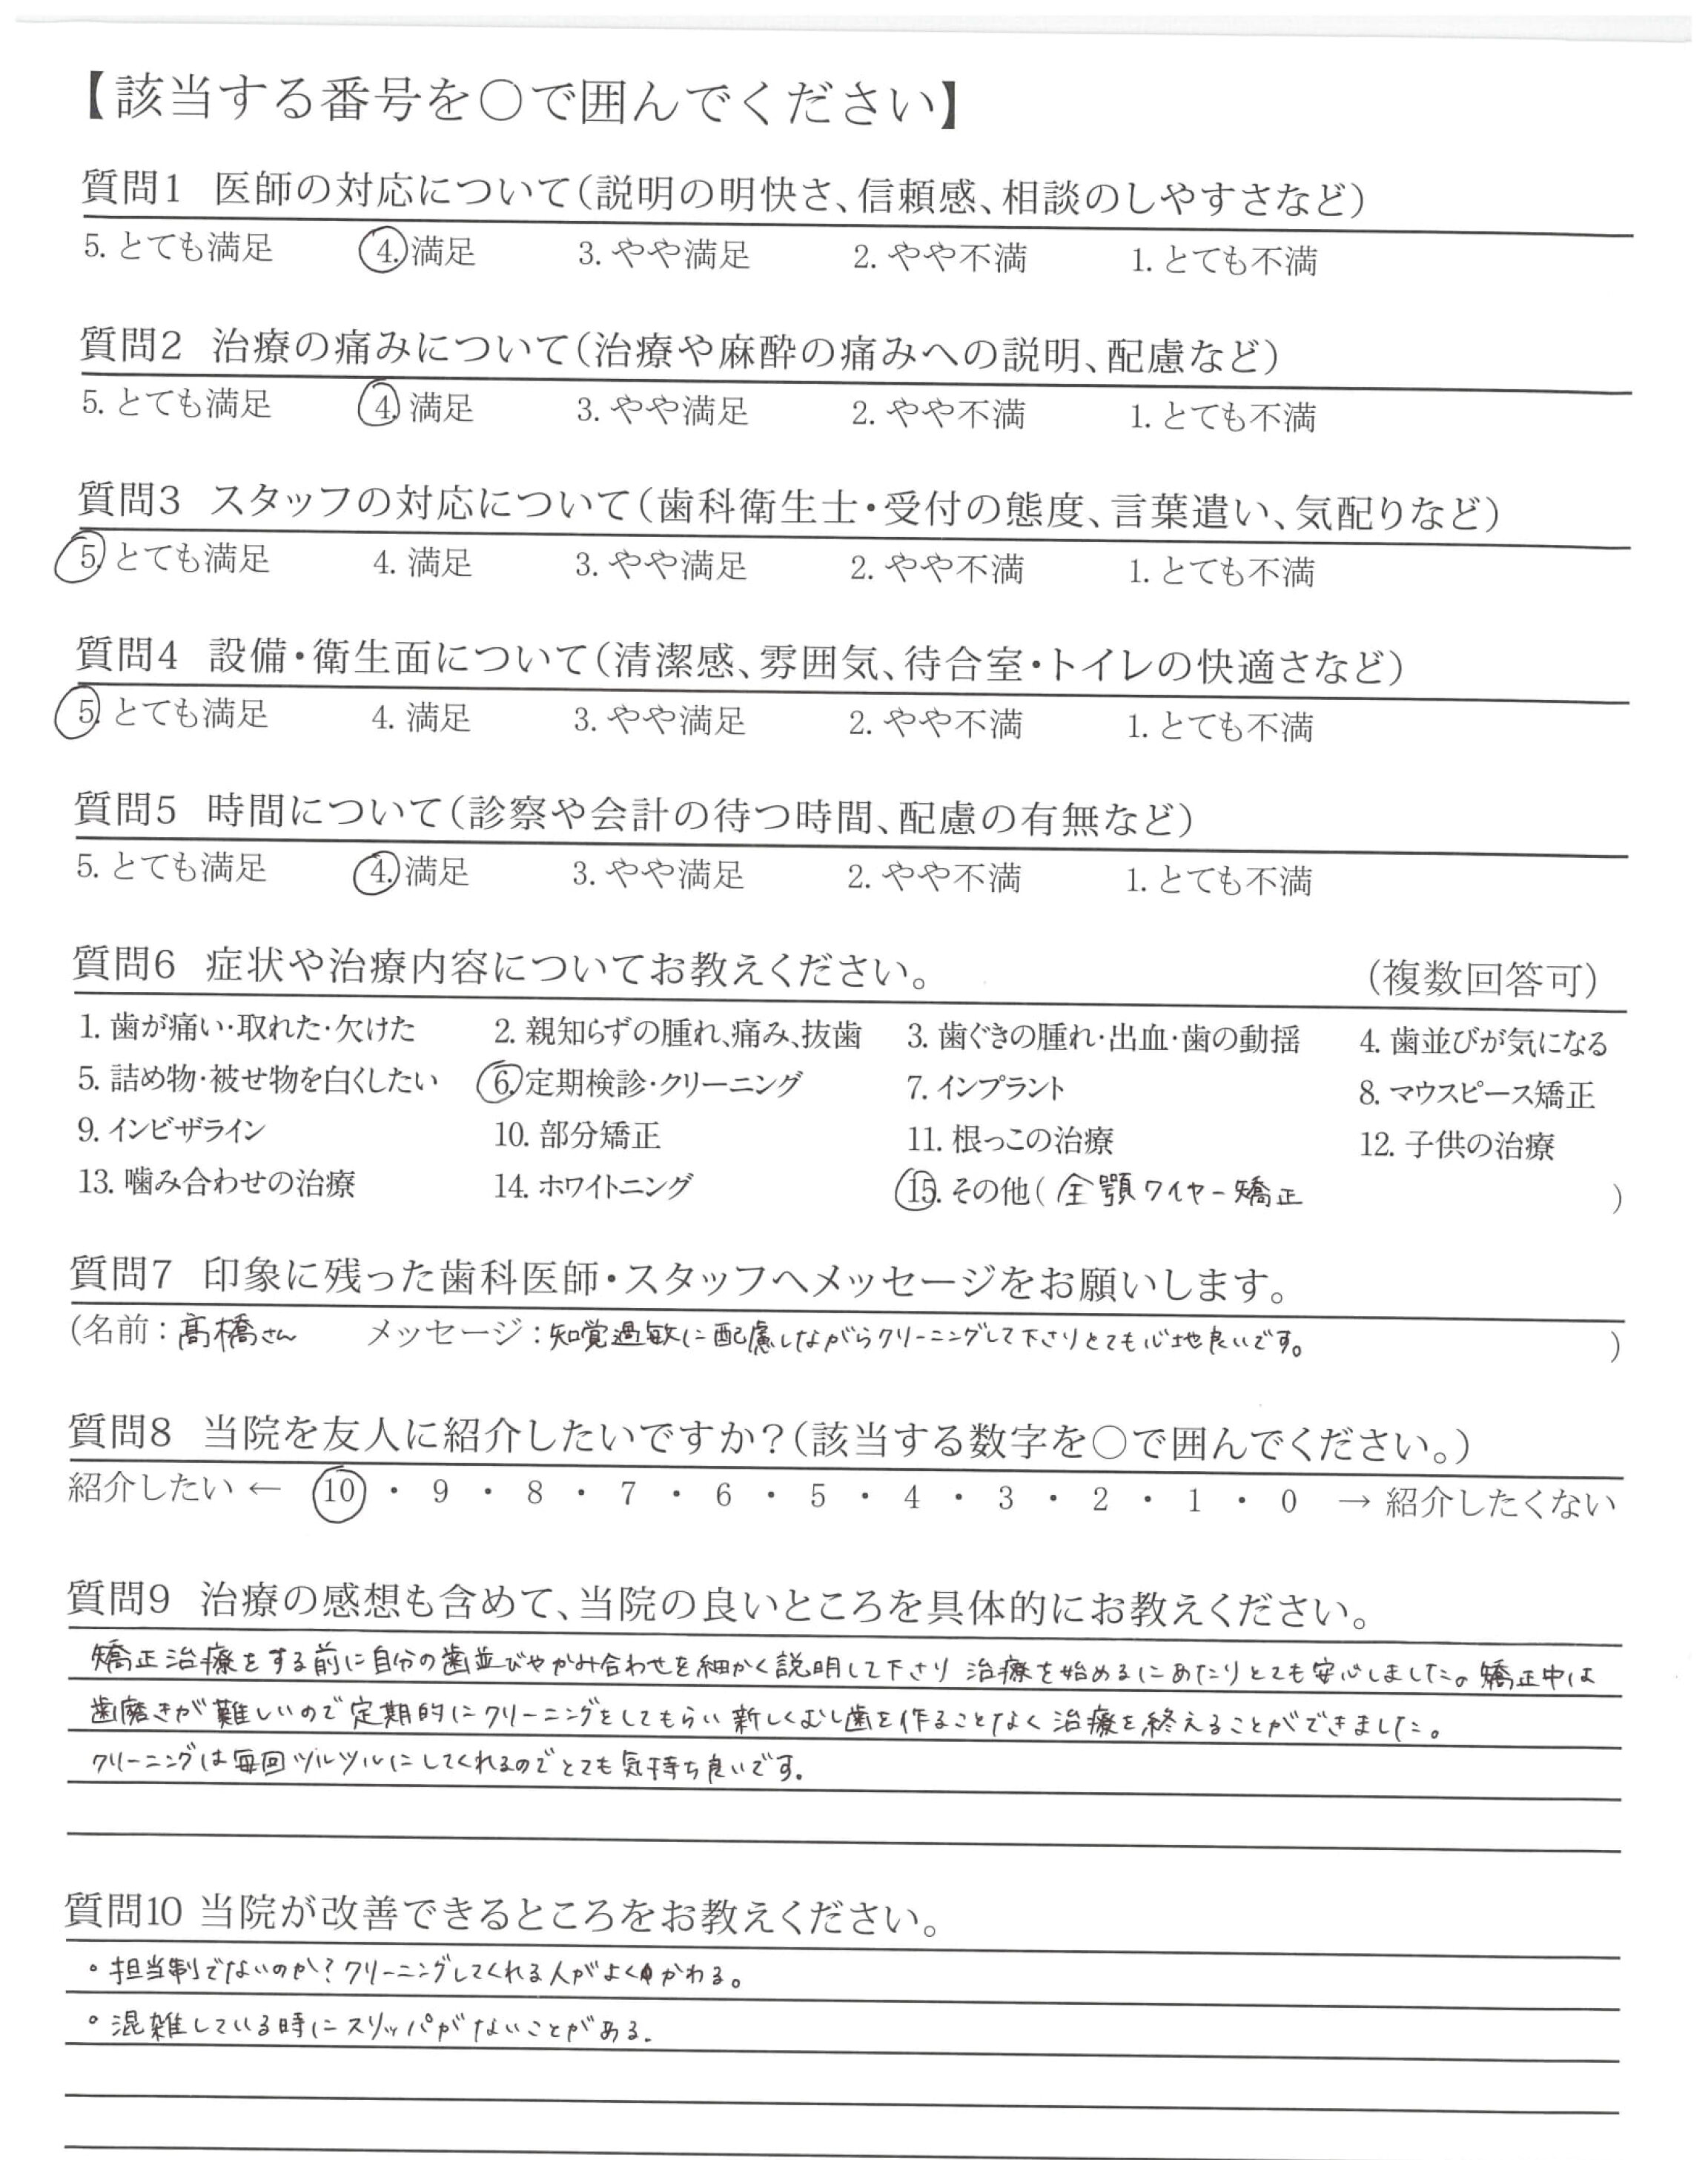 【該当する番号を○で囲んでください】
質問1 医師の対応について(説明の明快さ、信頼感、相談のしやすさなど)
5. とても満足 4. 満足 3. やや満足 2. やや不満 1. とても不満
質問2 治療の痛みについて(治療や麻酔の痛みへの説明、配慮など)
5. とても満足 4. 満足 3. やや満足 2. やや不満 1. とても不満
質問3 スタッフの対応について(歯科衛生士・受付の態度、言葉遣い、気配りなど)
5. とても満足 4. 満足 3. やや満足 2. やや不満 1. とても不満
質問4 設備・衛生面について(清潔感、雰囲気、待合室・トイレの快適さなど)
5. とても満足 4. 満足 3. やや満足 2. やや不満 1. とても不満
質問5 時間について(診察や会計の待つ時間、配慮の有無など)
5. とても満足 4. 満足 3. やや満足 2. やや不満 1. とても不満
質問6 症状や治療内容についてお教えください。 (複数回答可)
1. 歯が痛い・取れた・欠けた 2. 親知らずの腫れ、痛み、抜歯 3. 歯ぐきの腫れ・出血・歯の動揺 4. 歯並びが気になる
5. 詰め物・被せ物を白くしたい 6. 定期検診・クリーニング 7. インプラント 8. マウスピース矯正
9. インビザライン 10. 部分矯正 11. 根っこの治療 12. 子供の治療
13. 噛み合わせの治療 14. ホワイトニング 15. その他( 全顎ワイヤー矯正 )
質問7 印象に残った歯科医師・スタッフへメッセージをお願いします。
(名前:髙橋さん メッセージ:知覚過敏に配慮しながらクリーニングして下さりとても心地良いです。 )
質問8 当院を友人に紹介したいですか?(該当する数字を○で囲んでください。)
紹介したい ← 10 ・ 9 ・ 8 ・ 7 ・ 6 ・ 5 ・ 4 ・ 3 ・ 2 ・ 1 ・ 0 → 紹介したくない
質問9 治療の感想も含めて、当院の良いところを具体的にお教えください。
矯正治療をする前に自分の歯並びやかみ合わせを細かく説明して下さり 治療を始めるにあたりとても安心しました。矯正中は
歯磨きが難しいので定期的にクリーニングをしてもらい新しくむし歯を作ることなく治療を終えることができました。
クリーニングは毎回ツルツルにしてくれるのでとても気持ち良いです。
質問10 当院が改善できるところをお教えください。
・担当制でないのか?クリーニングしてくれる人がよくかわる。
・混雑している時にスリッパがないことがある。